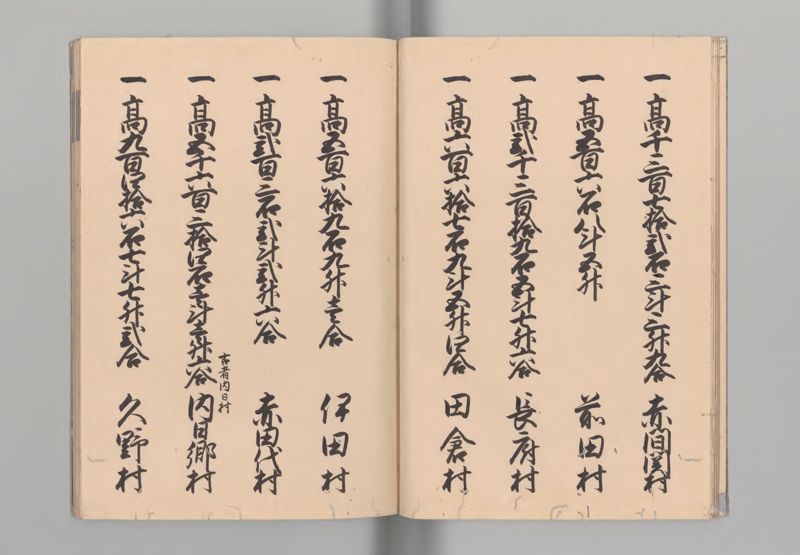 一 高千三百七拾弐石三斗三升九合 赤間関村
一 高五百六石八斗五升 前田村
一 高弐千三百拾九石五斗七升六合 長府村
一 高六百六拾七石九斗五升四合 田倉村
一 高五百六拾九石九升壱合 伊田村
一 高弐百三石弐斗弐升六合 赤田代村
古者内日村
一 高五千六百三拾四石壱斗壱升六合 内日郷村
一 高九百四拾六石七斗七升弐合 久野村